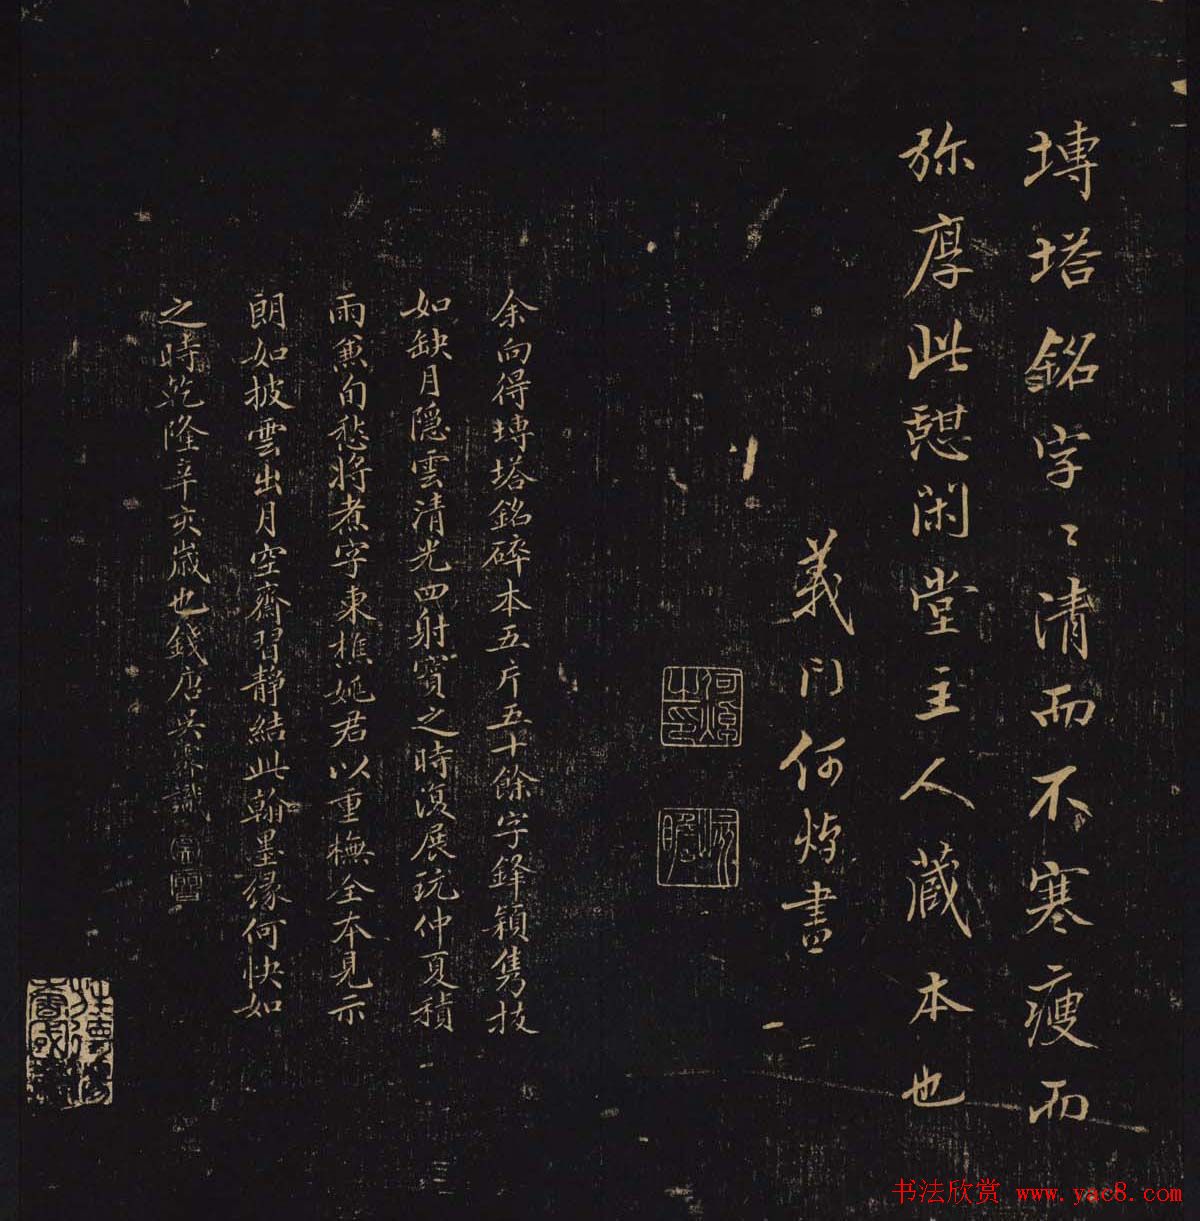 塼塔銘字〻清而不寒瘦而
弥厚此憩閑堂主人蔵本也
義门何焯書
何焯之印
屺瞻
余向得塼塔銘碎本五片五十餘字鋒穎隽拔
如缺月隱雲清光四射寳之時復展玩仲夏積
雨兼旬愁將煮字東樵姚君以重橅全本見示
朗如披雲出月空齋習静結此翰墨縁何快如
之時乾隆辛亥嵗也錢唐吴 識
书法欣赏 www.yac8.com